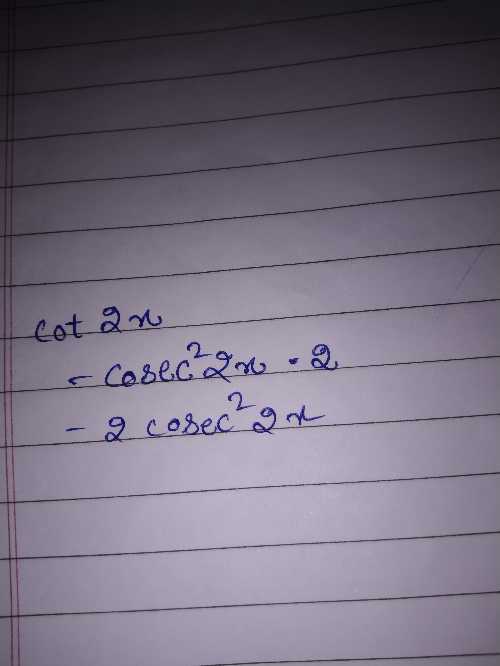 cot 2x
- cosec²2x · 2
- 2 cosec²2x